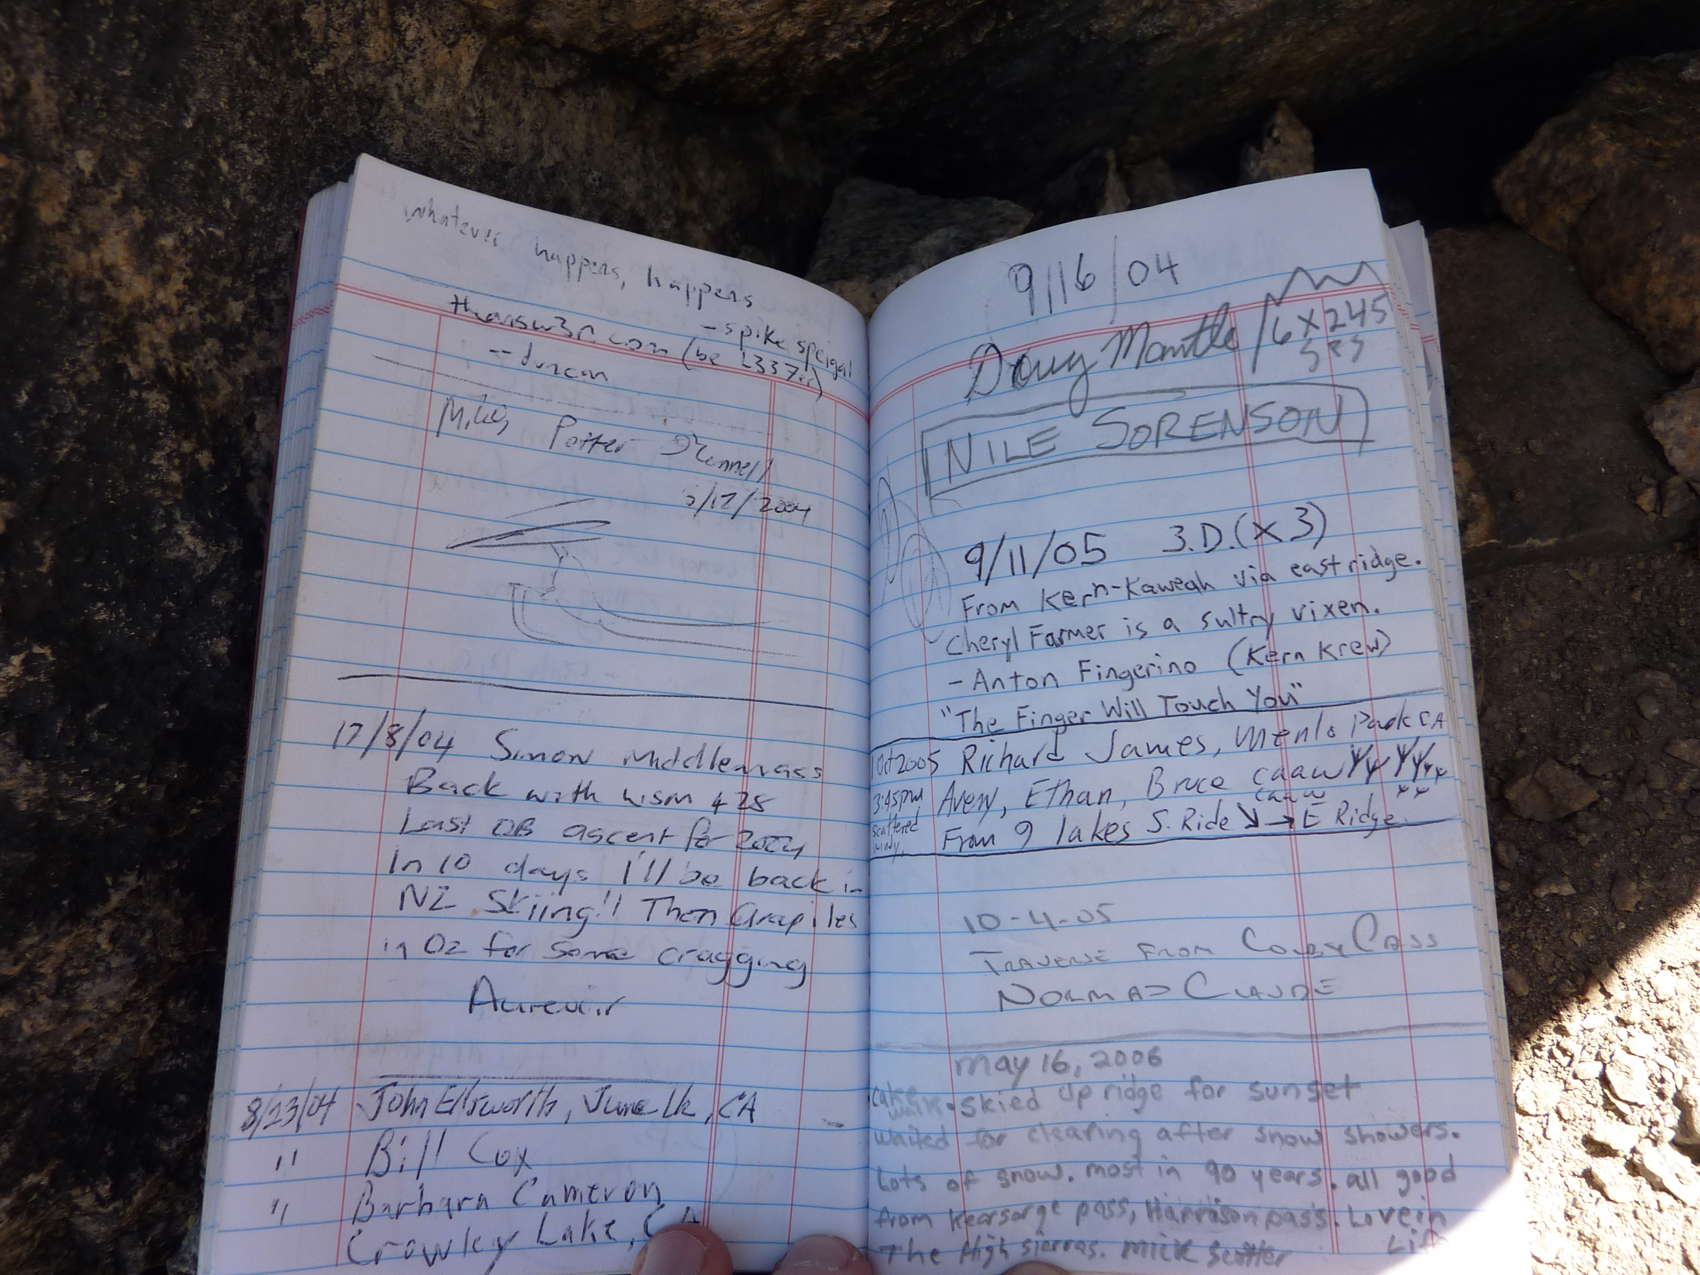 whatever happens, happens
- spike speigal
thansw3r.com (be L337.)
-- duncan
Miles Potter O'Connell
/17/2004
17/8/04 Simon Middlemass
Back with wsm 4 28
Last OB ascent for 2004
In 10 days I'll be back in
NZ Skiing!! Then Arapiles
in Oz for some cragging
Aurevoir
8/23/04 John Ellsworth, June Lk, CA
" Bill Cox
" Barbara Cameron
Crowley Lake, CA
9/16/04
Doug Mantle / 6 x 245
NILE SORENSON
9/11/05 3.D.(x3)
From Kern-Kaweah via east ridge.
Cheryl Farmer is a sultry vixen.
- Anton Fingerino (Kern Krew)
"The Finger Will Touch You"
Oct 2005 Richard James, Menlo Park CA
3:45pm Avery, Ethan, Bruce caaw
caaw
scattered From 9 lakes S. Ride → E Ridge.
10-4-05
TRAVERSE FROM COLBY PASS
NORMAN CLAUDE
may 16, 2006
Cake walk. Skied up ridge for sunset
waited for clearing after snow showers.
Lots of snow. most in 90 years. all good
from Kearsarge pass, Harrison pass. Love in
The High sierras. Mick Scutter